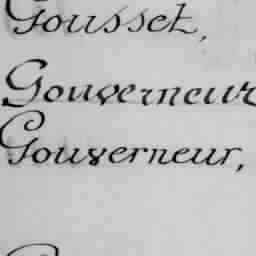 Gousset,
Gouverneur
Gouverneur,